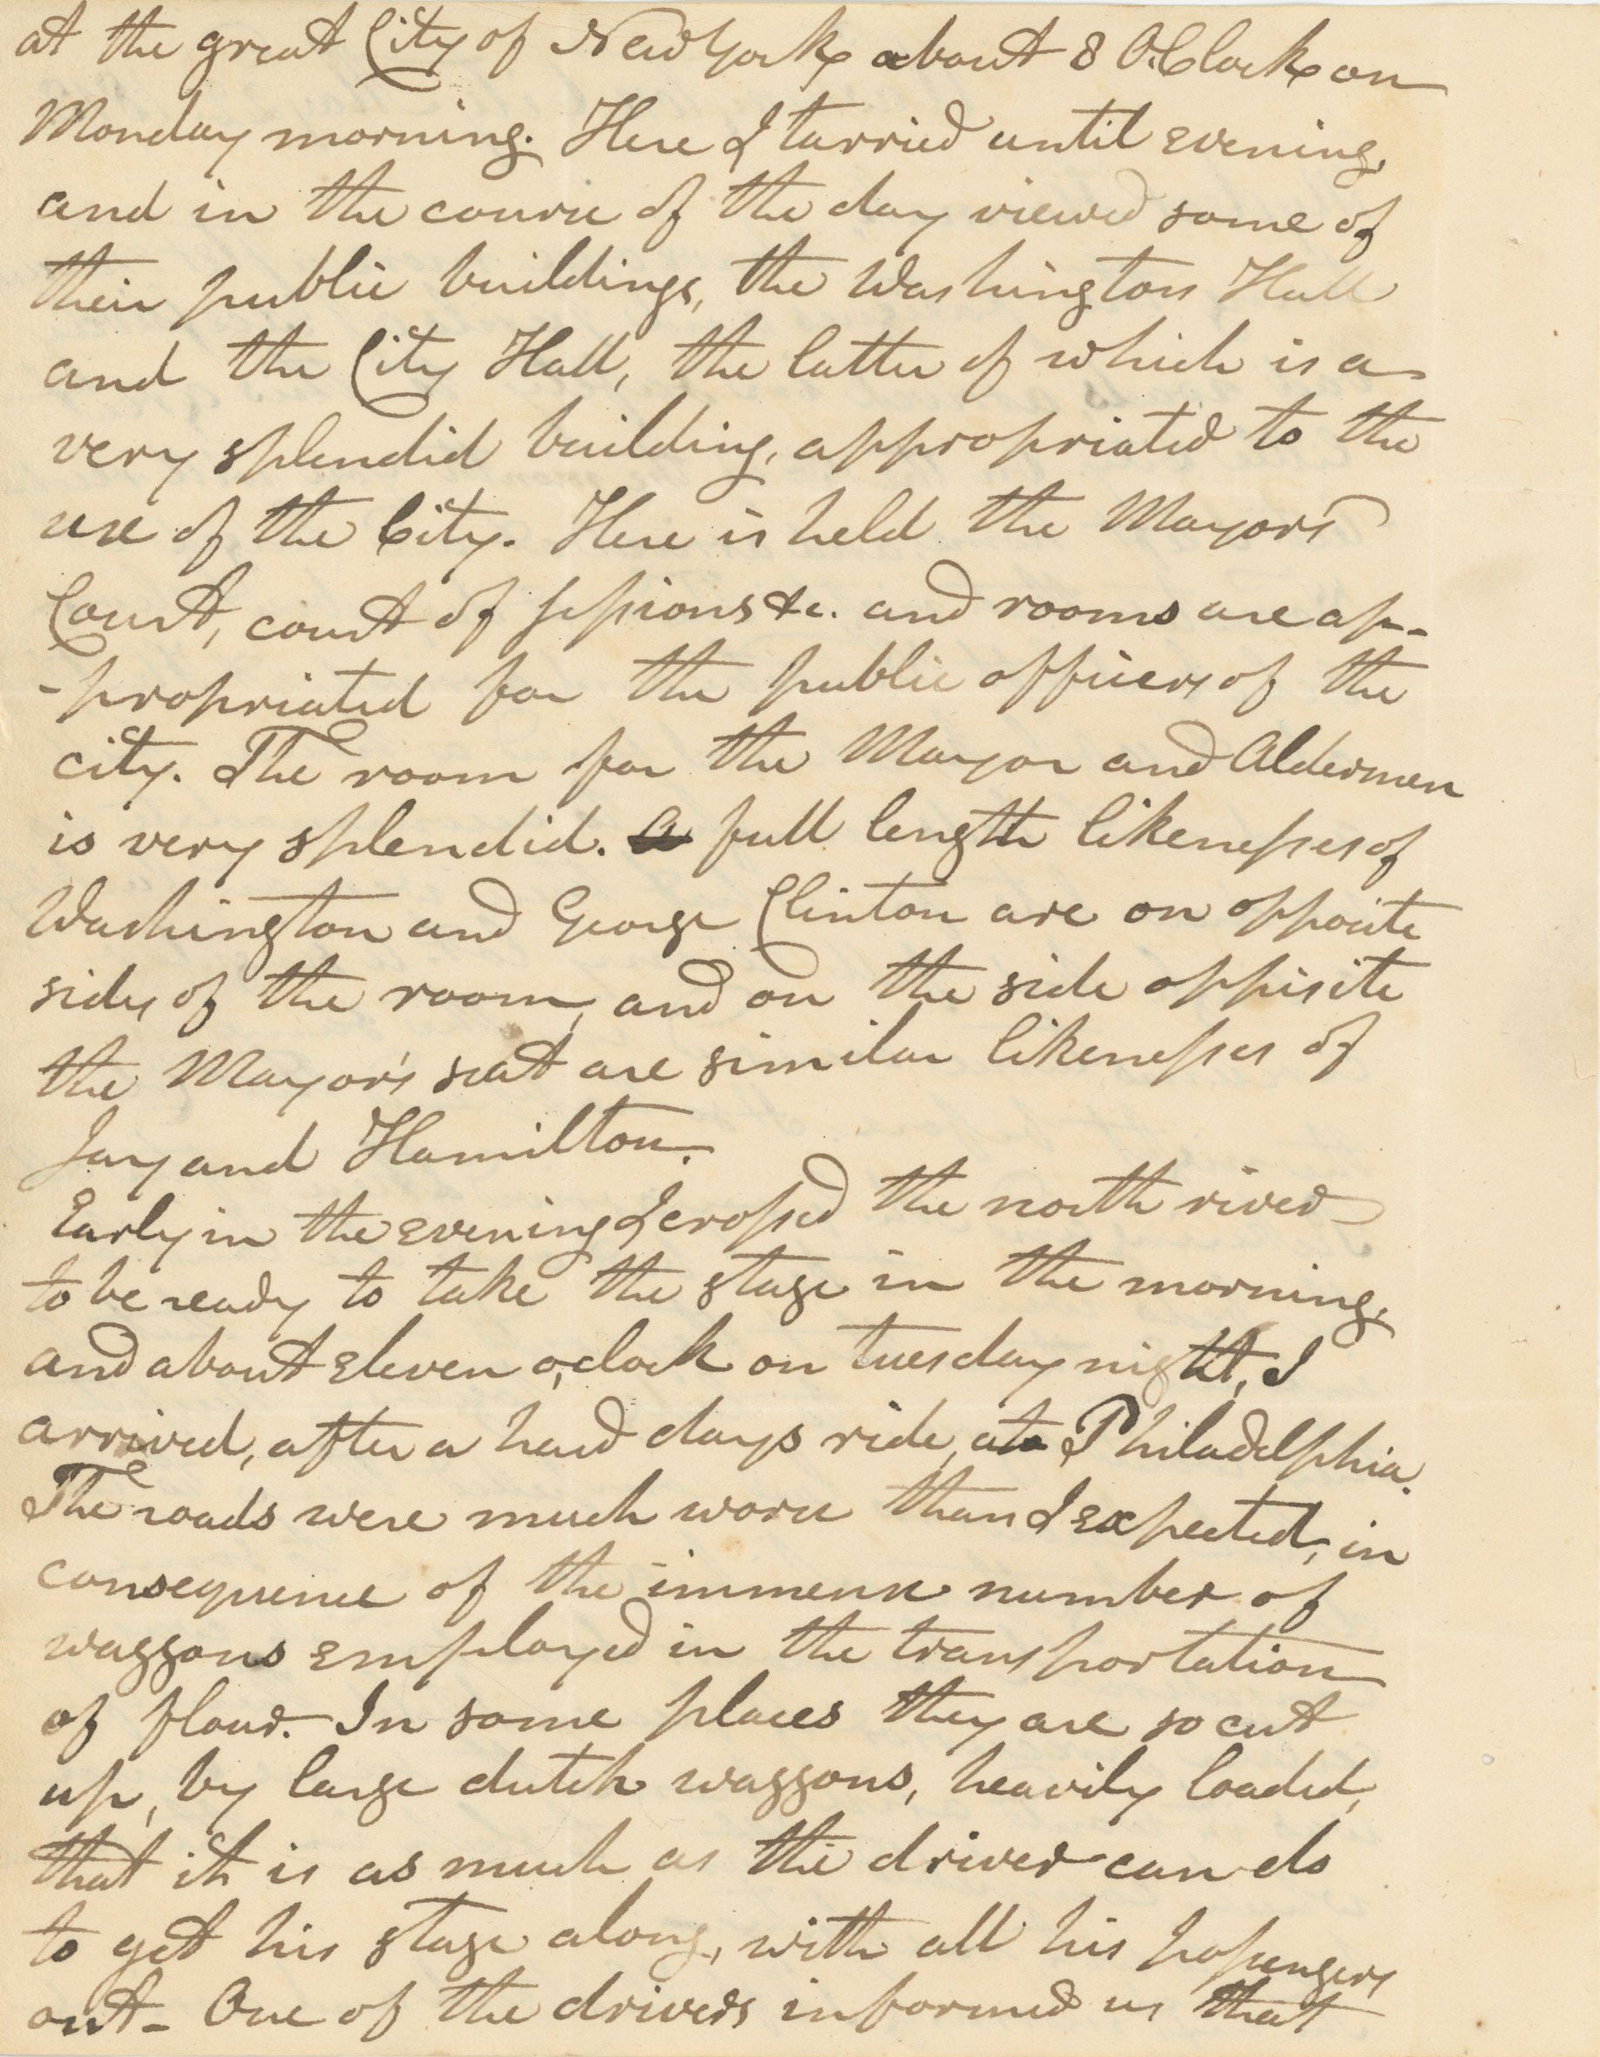 at the great City of New York about 8 O.Clock on
Monday morning. Here I tarried until evening,
and in the course of the day viewed some of
their public buildings, the Washington Hall
and the City Hall, the latter of which is a
very splendid building, appropriated to the
use of the City. Here is held the Mayors
Court, court of sessions &c. and rooms are ap-
-propriated for the public officers of the
city. The room for the Mayor and Aldermen
is very splendid. a full length likenesses of
Washington and George Clinton are on opposite
sides of the room, and on the side oppisite
the Mayor's seat are similar likenesses of
Jay and Hamilton.
Early in the evening I crossed the north river
to be ready to take the stage in the morning,
and about eleven o,clock on tuesday night, I
arrived, after a hard days ride, at Philadelphia.
The roads were much worse than I expected, in
consequence of the immense number of
waggons employed in the transportation
of flour. In some places they are so cut
up, by large dutch waggons, heavily loaded,
that it is as much as the driver can do
to get his stage along, with all his passengers
out - One of the drivers informed us that